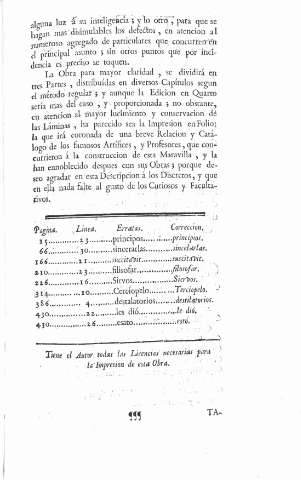 alguna luz á su inteligencia ; y lo otro , para que se
hagan mas disimulables los defectos , en atencion al
numeroso agregado de particulares que concurren en
el principal asunto ; sin otros puntos que por inci-
dencia es preciso se toquen.
La Obra para mayor claridad , se dividirá en
tres Partes , distribuídas en diversos Capítulos segun
el método regular ; y aunque la Edicion en Quarto
sería mas del caso , y proporcionada ; no obstante,
en atencion al mayor lucimiento y conservacion de
las Láminas , ha parecido sea la Impresion en Folio;
la que irá coronada de una breve Relacion y Catá-
logo de los famosos Artífices , y Profesores, que con-
currieron á la construccion de esta Maravilla , y la
han ennoblecido despues con sus Obras ; porque de-
seo agradar en esta Descripcion á los Discretos, y que
en ella nada falte al gusto de los Curiosos y Faculta-
tivos.
Pagina. Linea. Erratas. Correccion.
15............23.........principos..........principios.
66............30.........sinceraclas.........sincelarlas.
166............21.........
210............23.........filisofar..........filosofar.
226............16.........Sirvos..........Siervos.
314............10.........Cerciopelo.........Terciopelo.
386............ 4.........destalatorios.......destilatorios.
430............22.........les dió............le dió.
430............26.........esato............está.
Tiene el Autor todas las Licencias necesarias para
la Impresion de esta Obra.
¶¶¶ TA-